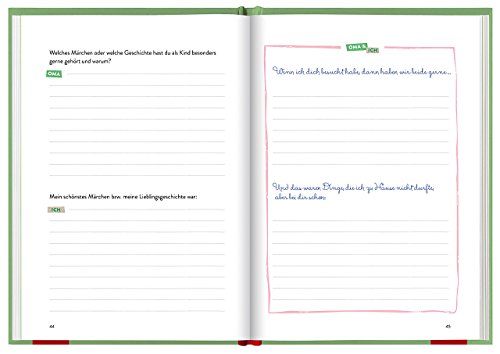 Welches Märchen oder welche Geschichte hast du als Kind besonders
gerne gehört und warum?
OMA
Mein schönstes Märchen bzw. meine Lieblingsgeschichte war:
ICH
44
OMA &
ICH
Wenn ich dich besucht habe, dann haben wir beide gerne...
Und das waren Dinge, die ich zu Hause nicht durfte,
aber bei dir schon:
45